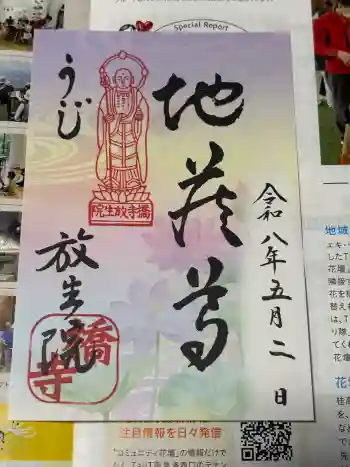 Special Report
令和八年五月二日
地蔵尊
うじ
橋寺放生院
放生院
橋寺
注目情報を日々発信
「コミュニティ花壇」の情報だけで